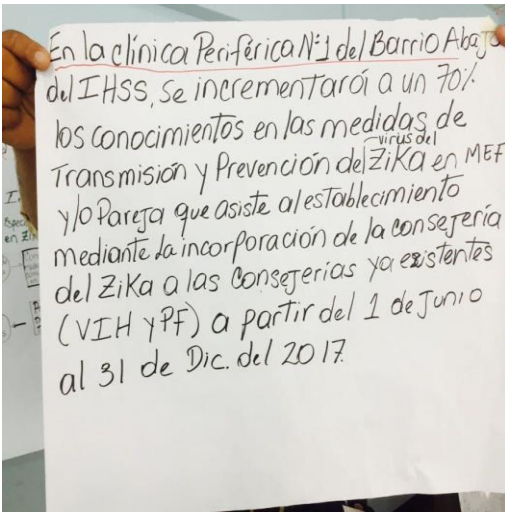 En la clínica Periférica Nº1 del Barrio Abajo
del IHSS, se incrementará a un 70%
los conocimientos en las medidas de
Transmisión y Prevención del virus del Zika en MEF
y/o Pareja que asiste al establecimiento
mediante la incorporación de la consejería
del Zika a las Consejerias ya existentes
(VIH y PF) a partir del 1 de Junio
al 31 de Dic. del 2017.